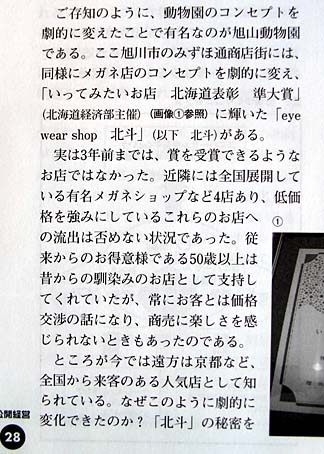 ご存知のように、動物園のコンセプトを
劇的に変えたことで有名なのが旭山動物園
である。ここ旭川市のみずほ通商店街には、
同様にメガネ店のコンセプトを劇的に変え、
「いってみたいお店　北海道表彰　準大賞」
(北海道経済部主催)(画像①参照)に輝いた「eye
wear shop　北斗」(以下　北斗)がある。
実は3年前までは、賞を受賞できるような
お店ではなかった。近隣には全国展開して
いる有名メガネショップなど4店あり、低価
格を強みにしているこれらのお店へ
の流出は否めない状況であった。従
来からのお得意様である50歳以上は
昔からの馴染みのお店として支持し
てくれていたが、常にお客とは価格
交渉の話になり、商売に楽しさを感
じられないときもあったのである。
ところが今では遠方は京都など、
全国から来客のある人気店として知
られている。なぜこのように劇的に
変化できたのか？「北斗」の秘密を
①
公開経営
28